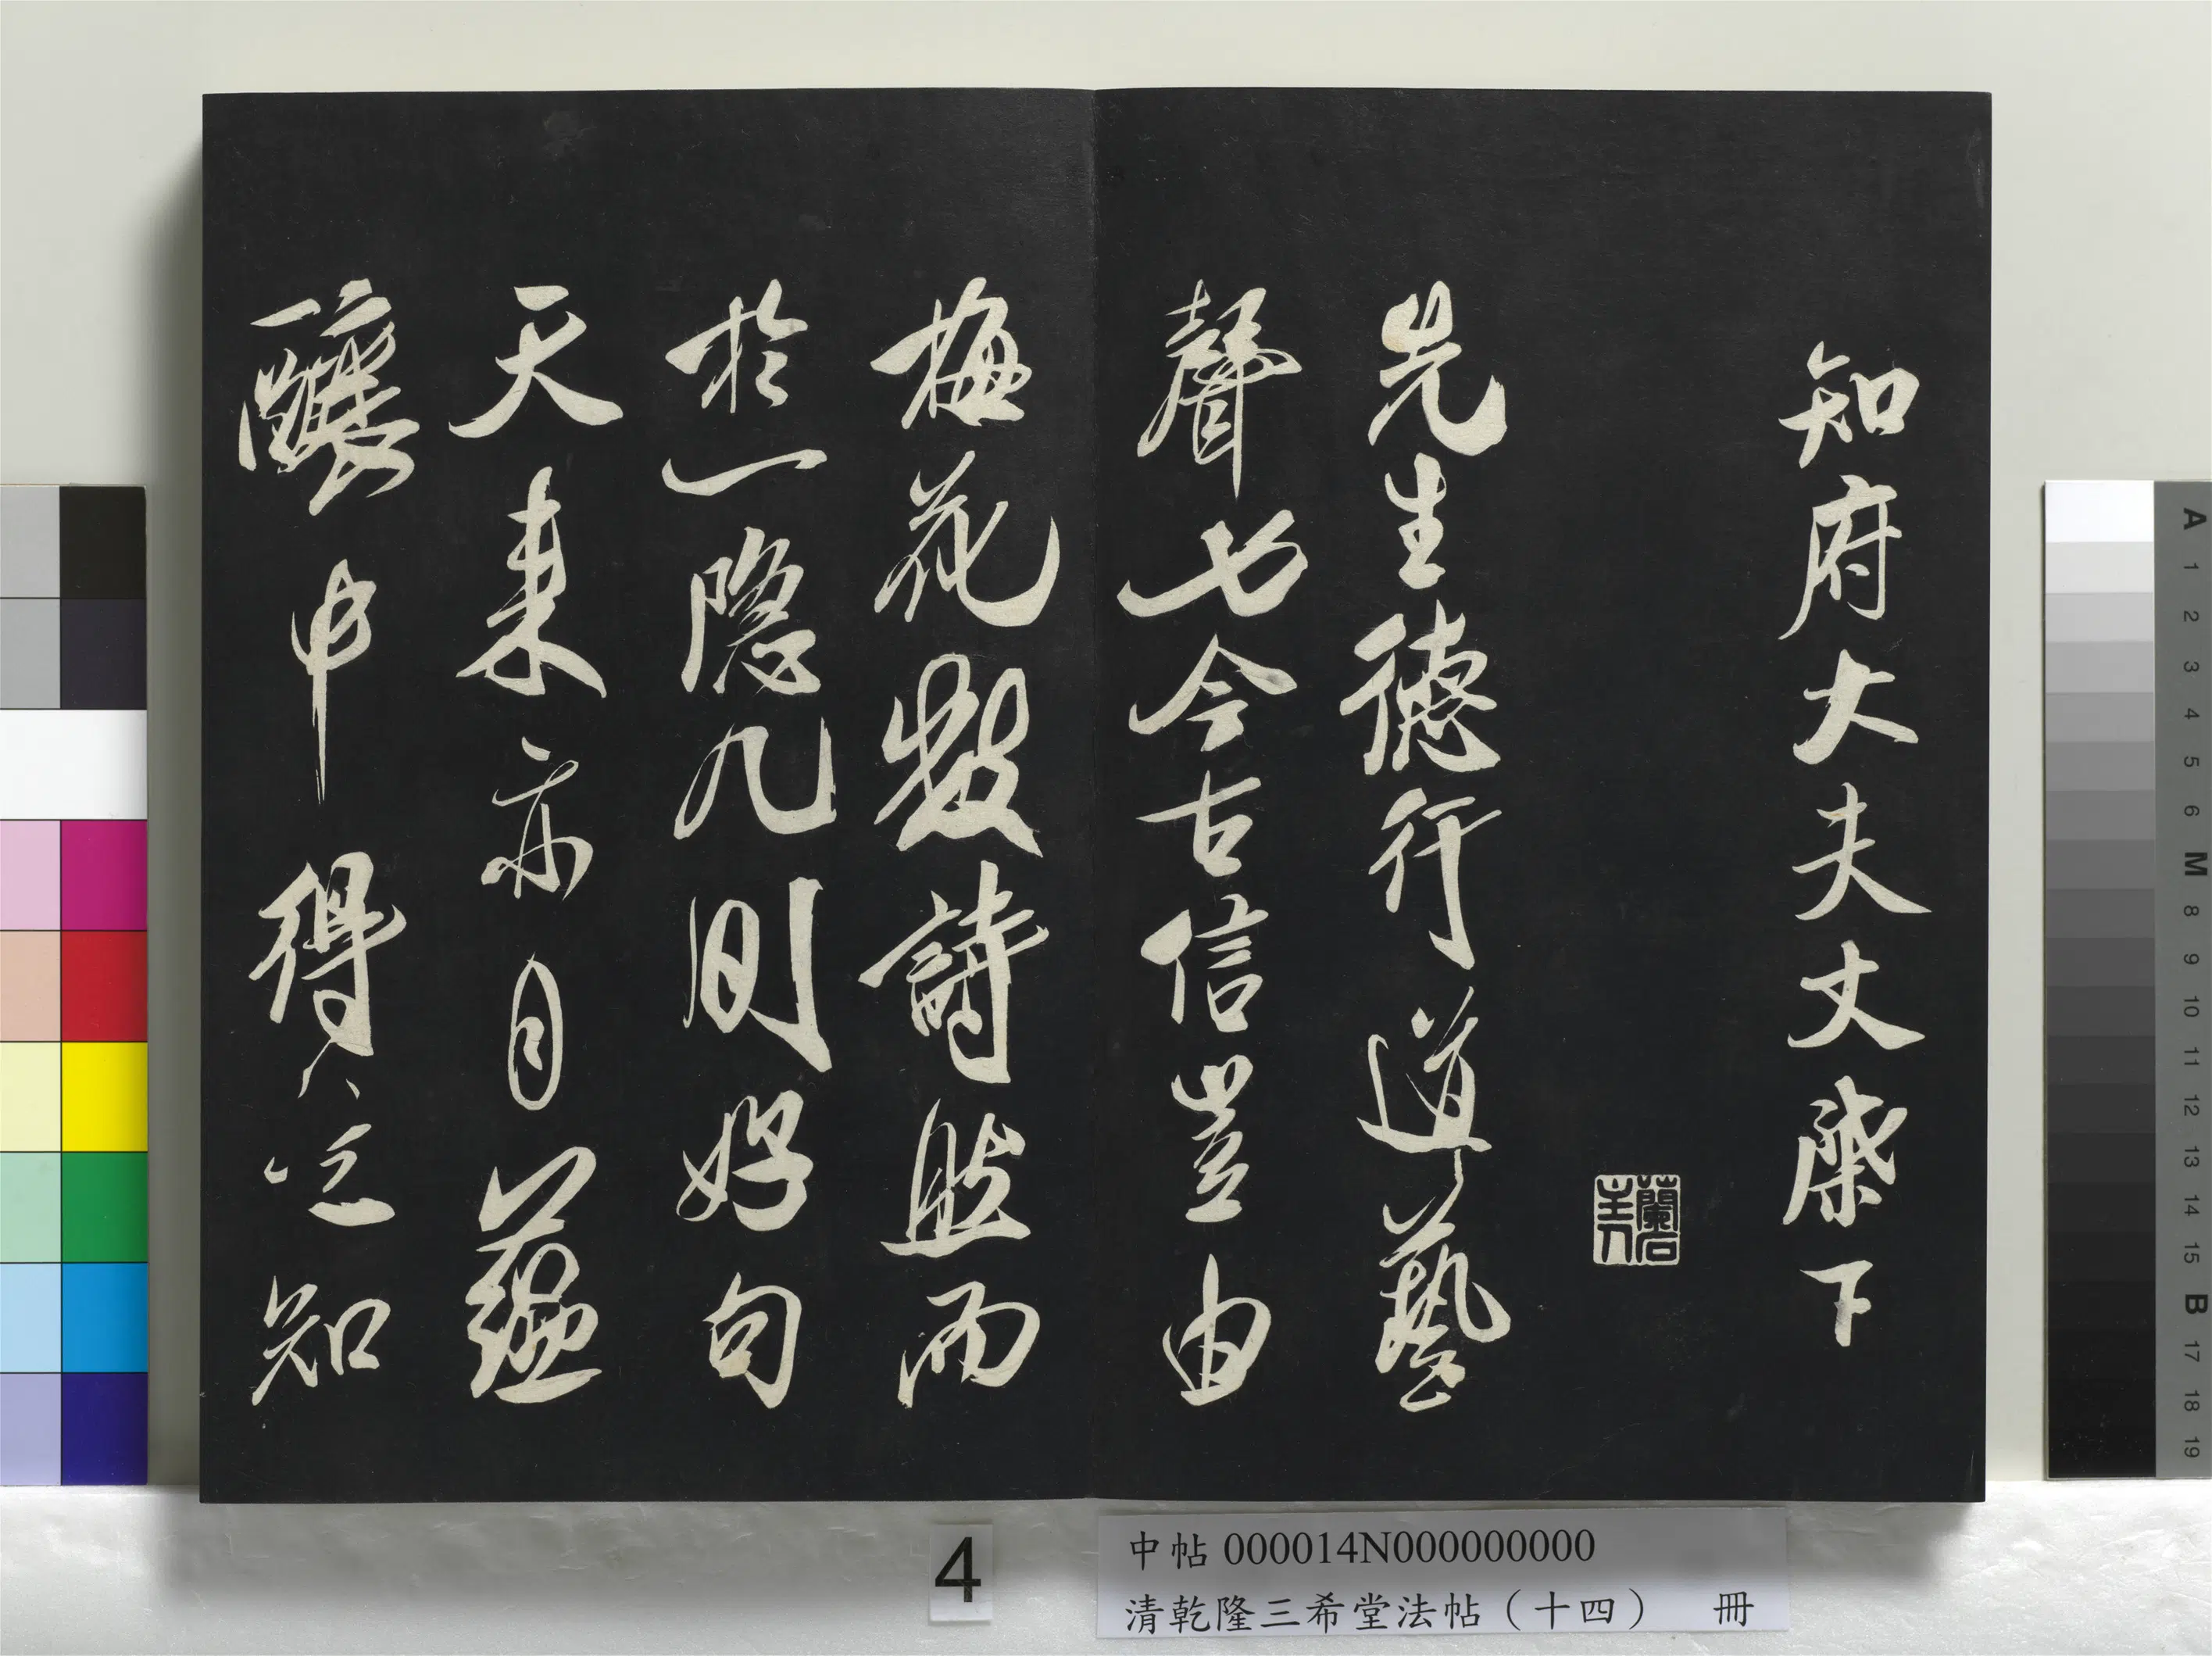 知府大夫丈棨下
蘭石主人
先生德行道藝
聲七今古信豈由
梅花數詩然而
於一隱几間好句
天來亦自蘊
釀中得知
4
中帖 000014N000000000
清乾隆三希堂法帖（十四） 冊
A 1 2 3 4 5 6 M 8 9 10 11 12 13 14 15 B 17 18 19